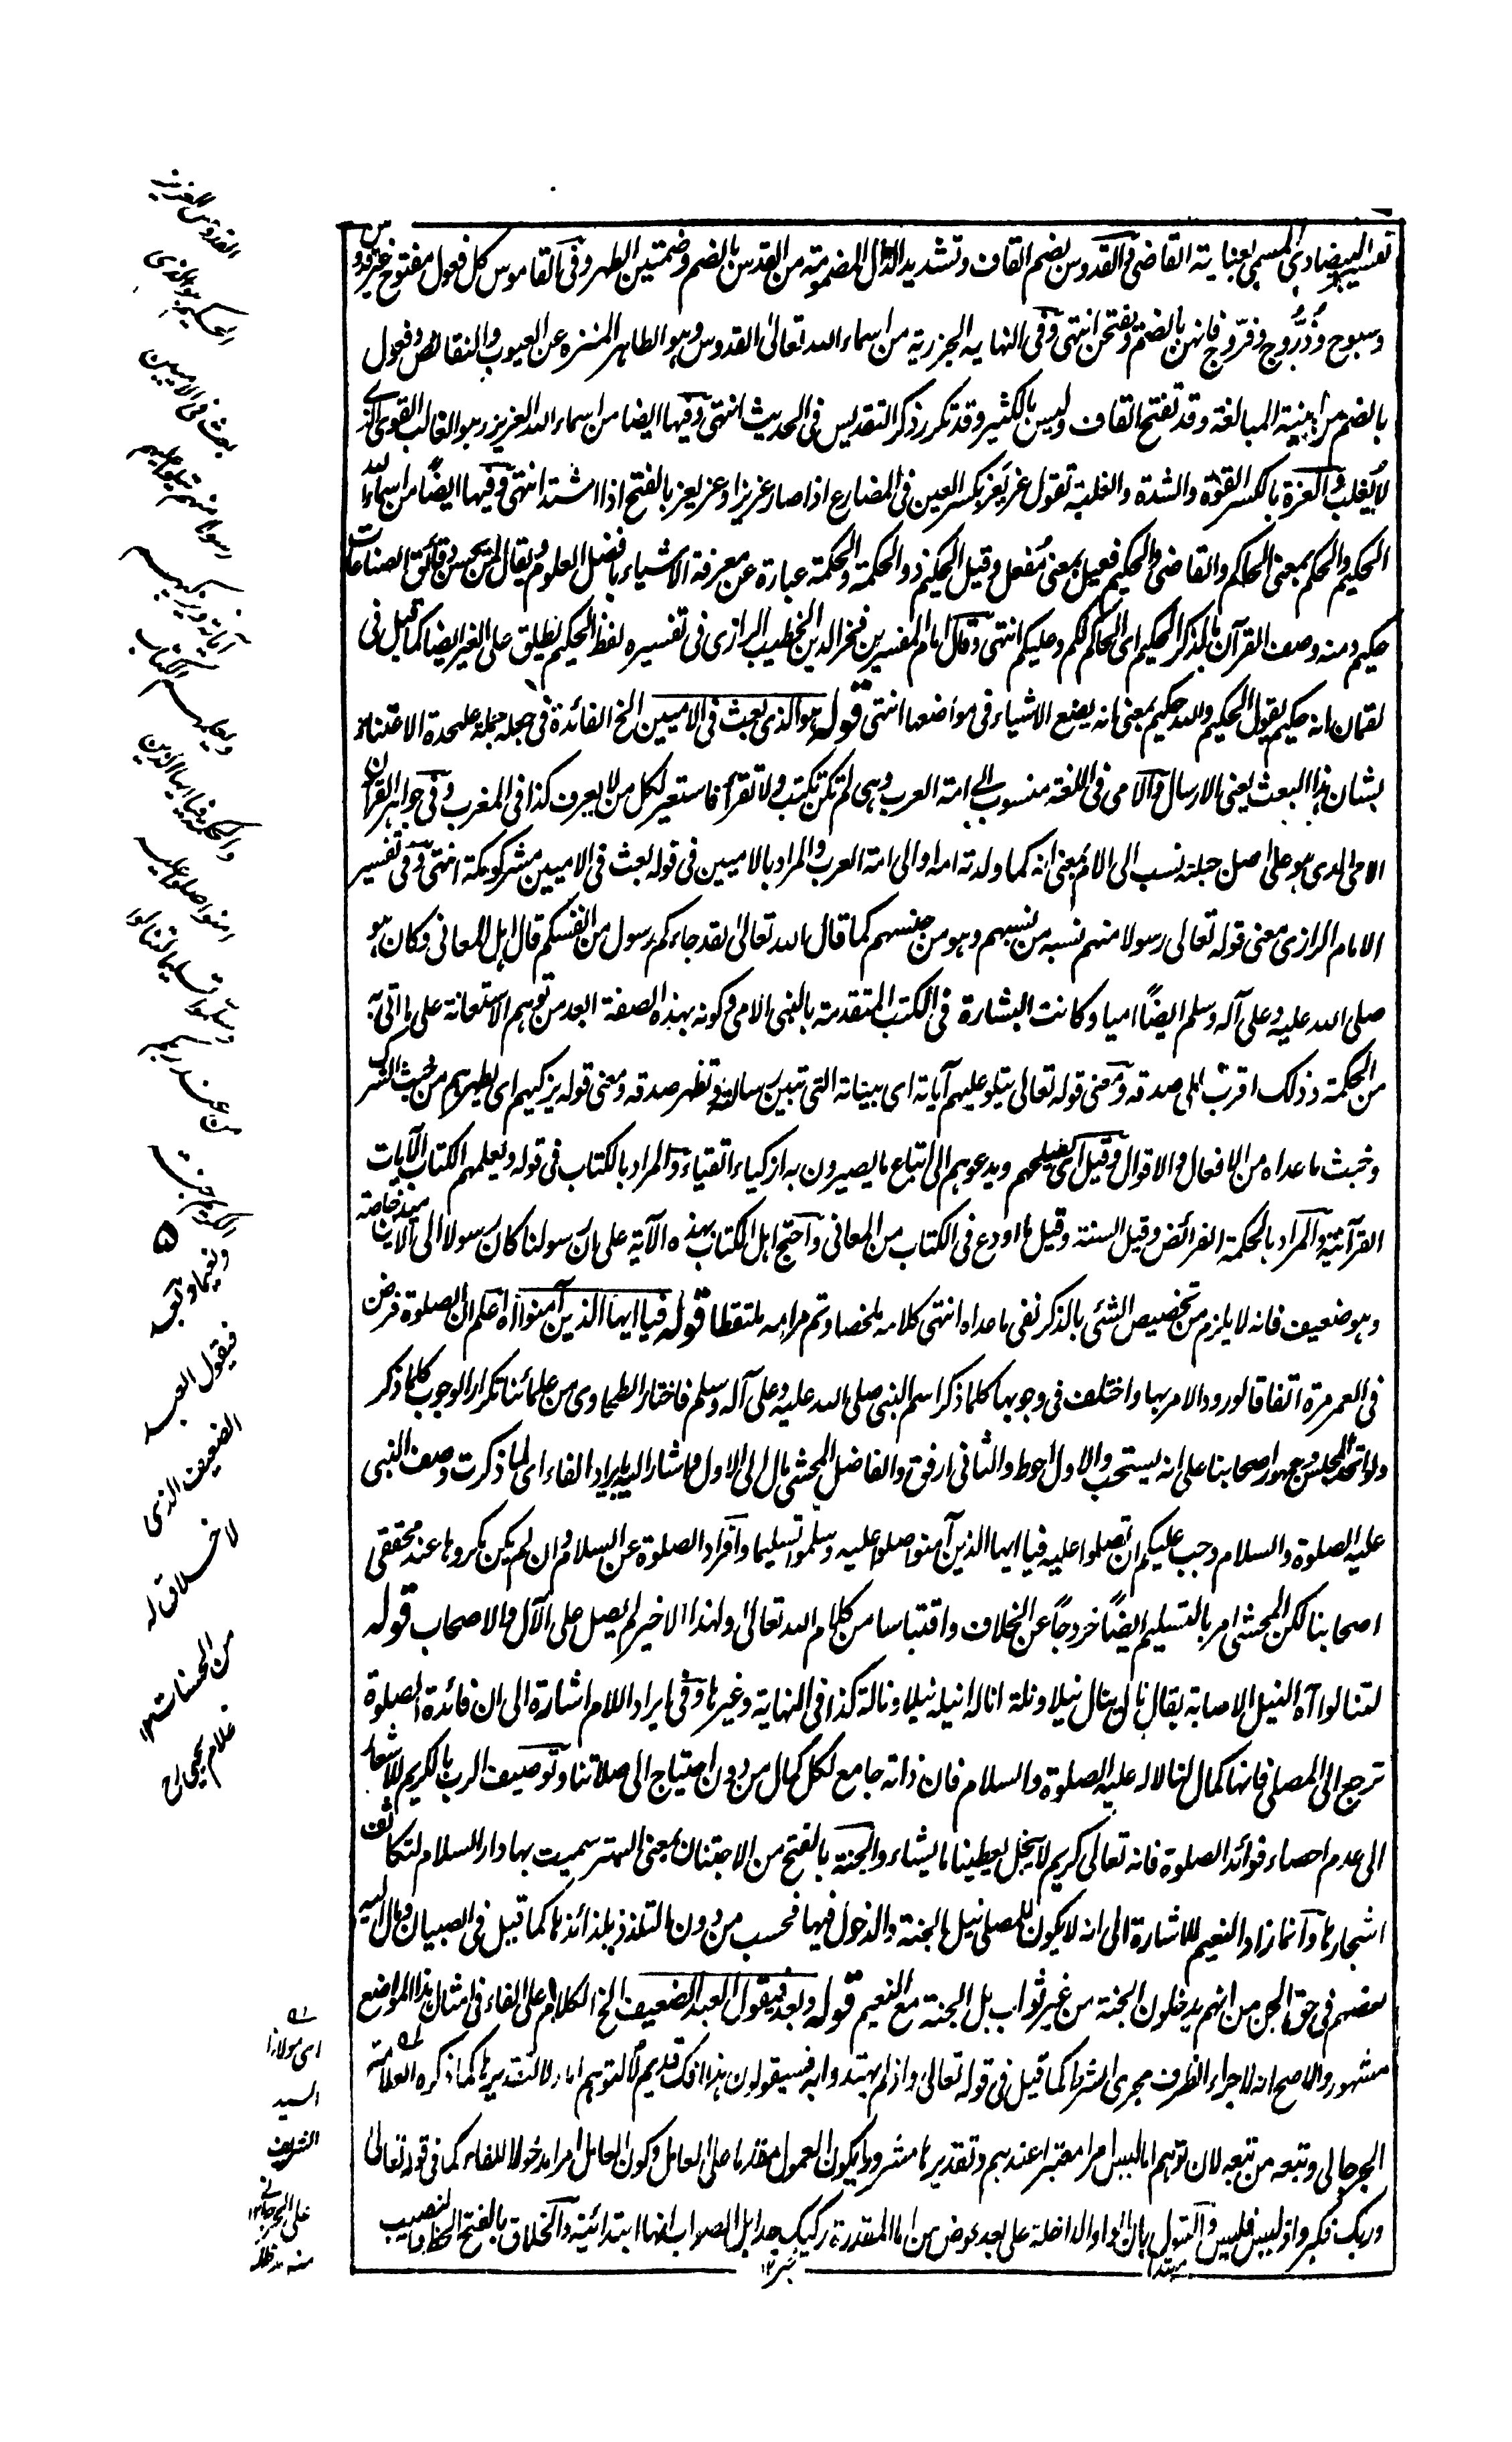 تفسير البيضاوي المسمى بعناية القاضي والقدوس بضم القاف وتشديد الدال المضمومة من القدس بالضم وضمتين الطهر وفي القاموس كل فعول مفتوح غير قدوس
وسبوح وذروح وفروج فانهن بالضم ويفتحن انتهى وفي النهاية الجزرية من اسماء الله تعالى القدوس وهو الطاهر المنزه عن العيوب والنقائص وفعول
بالضم من ابنية المبالغة وقد تفتح القاف وليس بالكثير وقد تكرر ذكر التقديس في الحديث انتهى وفيها ايضا من اسماء الله العزيز هو الغالب القوي الذي
لا يغلب والعزة بالكسر القوة والشدة والغلبة تقول عز يعز بكسر العين في المضارع اذا صار عزيزا وعز يعز بالفتح اذا اشتد انتهى وفيها ايضًا من اسماء الله
الحكيم والحكم بمعنى الحاكم والقاضي والحكيم فعيل بمعنى مُفعل وقيل الحكيم ذو الحكمة والحكمة عبارة عن معرفة الاشياء بافضل العلوم ويقال لمن يحسن دقائق الصناعات
حكيم ومنه وصف القرآن بالذكر الحكيم اى الحاكم لكم وعليكم انتهى وقال امام المفسرين فخر الدين الخطيب الرازي في تفسيره لفظ الحكيم يطلق على الغير ايضا كما قيل في
لقمان انه حكيم يقول الحكيم والله حكيم بمعنى انه يضع الاشياء في مواضعها انتهى قوله هو الذي بعث في الاميين الخ الفائدة في جعله جملة علىحدة الاعتناء
بشان هذا البعث يعني الارسال والامي في اللغة منسوب الى امة العرب وهي لم تكن تكتب ولا تقرأ فاستعير لكل من لا يعرف كذا في المغرب وفي جواهر القرآن
الامي الذي هو على اصل جبلته نسب الى الام بمعنى انه كما ولدته امه او الى امة العرب والمراد بالاميين في قوله بعث في الاميين مشركو مكة انتهى وفي تفسير
الامام الرازي معنى قوله تعالى رسولا منهم نسبه من نسبهم وهو من جنسهم كما قال الله تعالى لقد جاءكم رسول من انفسكم قال اهل المعاني وكان هو
صلى الله عليه وعلى آله وسلم ايضًا اميا وكانت البشارة في الكتب المتقدمة بالنبي الامي وكونه بهذه الصفة ابعد من توهم الاستعانة على ما اتى به
من الحكمة وذلك اقرب الى صدقه ومعنى قوله تعالى يتلو عليهم آياته اى بيناته التي تبين رسالته وتظهر صدقه ومعنى قوله يزكيهم اى يطهرهم من خبث الشرك
وخبث ما عداه من الافعال والاقوال وقيل اى يصلحهم ويدعوهم الى اتباع ما يصيرون به ازكياء اتقياء والمراد بالكتاب في قوله ويعلمهم الكتاب الآيات
القرآنية والمراد بالحكمة الفرائض وقيل السنة وقيل ما اودع في الكتاب من المعاني واحتج اهل الكتاب بهذه الآية على ان رسولنا كان رسولا الى الاميين خاصة
وهو ضعيف فانه لا يلزم من تخصيص الشئ بالذكر نفي ما عداه انتهى كلامه ملخصا وتم مرامه ملتقطا قوله فيا ايها الذين آمنوا آه اعلم ان الصلوة فرض
في العمر مرة اتفاقا لورود الامر بها واختلف في وجوبها كلما ذكر اسم النبي صلى الله عليه وعلى آله وسلم فاختار الطحاوي من علمائنا تكرار الوجوب كلما ذكر
ولو اتحد المجلس وجمهور اصحابنا على انه يستحب والاول احوط والثاني ارفق والفاضل المحشي مال الى الاول واشار اليه بايراد الفاء اى لما ذكرت وصف النبي
عليه الصلوة والسلام وجب عليكم ان تصلوا عليه فيا ايها الذين آمنوا صلوا عليه وسلموا تسليما وافراد الصلوة عن السلام وان لم يكن مكروها عند محققي
اصحابنا لكن المحشي امر بالتسليم ايضًا خروجًا عن الخلاف واقتباسا من كلام الله تعالى ولهذا الاخير لم يصل على الآل والاصحاب قوله
لتنالوا آه النيل الاصابة يقال نال ينال نيلا ونلته اناله انيله نيلا ونالة كذا في النهاية وغيرها وفي ايراد اللام اشارة الى ان فائدة الصلوة
ترجع الى المصلي فانها كمال لنا لا له عليه الصلوة والسلام فان ذاته جامع لكل كمال من دون احتياج الى صلاتنا وتوصيف الرب بالكريم للاشعار
الى عدم احصاء فوائد الصلوة فانه تعالى كريم لا يبخل يعطينا ما يشاء والجنة بالفتح من الاجتنان بمعنى التستر سميت بها دار السلام لتكاثف
اشجارها وانما زاد النعيم للاشارة الى انه لا يكون للمصلي نيل الجنة والدخول فيها فحسب من دون التلذذ بلذائذها كما قيل في الصبيان ومال اليه
بعضهم في حق الجن من انهم يدخلون الجنة من غير ثواب بل الجنة مع النعيم قوله وبعد فيقول العبد الضعيف الخ الكلام على الفاء في امثال هذا المواضع
مشهور والاصح انه لاجراء الظرف مجرى الشرط كما قيل في قوله تعالى واذ لم يهتدوا به فسيقولون هذا افك قديم لا لتوهم اما ولا لتقديرها كما ذكره العلامة
الجرجاني وتبعه من تبعه لان توهم اما ليس امرا معتبرا عندهم وتقديرها مشروط بكون المعمول مقدما على العامل وكون العامل امرا مدخولا للفاء كما في قوله تعالى
وربك فكبر واذ ليس فليس والقول بان الواو الداخلة على بعد عوض من اما المقدرة ركيك جدا بل الصواب انها ابتدائية والخلاق بالفتح الحظ والنصيب
مبتدا
خبر ١٢
القدوس العزيز
الحكيم هو الذي
بعث في الاميين
رسولا منهم يتلو عليهم
آياته ويزكيهم
ويعلمهم الكتاب
والحكمة فيا ايها الذين
آمنوا صلوا عليه
وسلموا تسليما لتنالوا
من عند ربكم
الكريم جنة
٥
ونعيما وبعد
فيقول العبد
الضعيف الذي
لا خلاق له
من الحسنات
غلام يحيى
اى مولانا
السيد
الشريف
على الجرجاني ١٢
منه مدظله